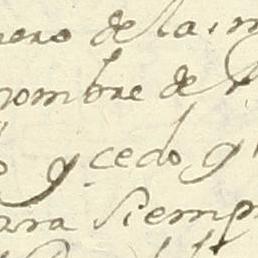 nero de la m
nombre de
y cedo, q
para siemp